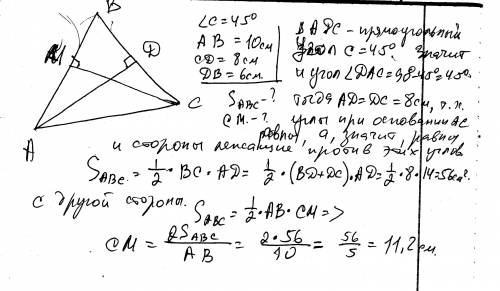 B
M
D
C
A
∠C = 45°
AB = 10см
CD = 8см
DB = 6см.
S_ABC - ?
CM - ?
ΔADC - прямоугольный
угол C = 45° значит
и угол ∠DAC = 90°-45° = 45°.
тогда AD = DC = 8см, т.к.
углы при основании AC
равны, а, значит, равны
и стороны лежащие против этих углов
S_ABC = 1/2 · BC · AD = 1/2 · (BD + DC) · AD = 1/2 · 8 · 14 = 56см².
С другой стороны.
S_ABC = 1/2 · AB · CM =>
CM = 2S_ABC / AB = 2·56 / 10 = 56/5 = 11,2 см.